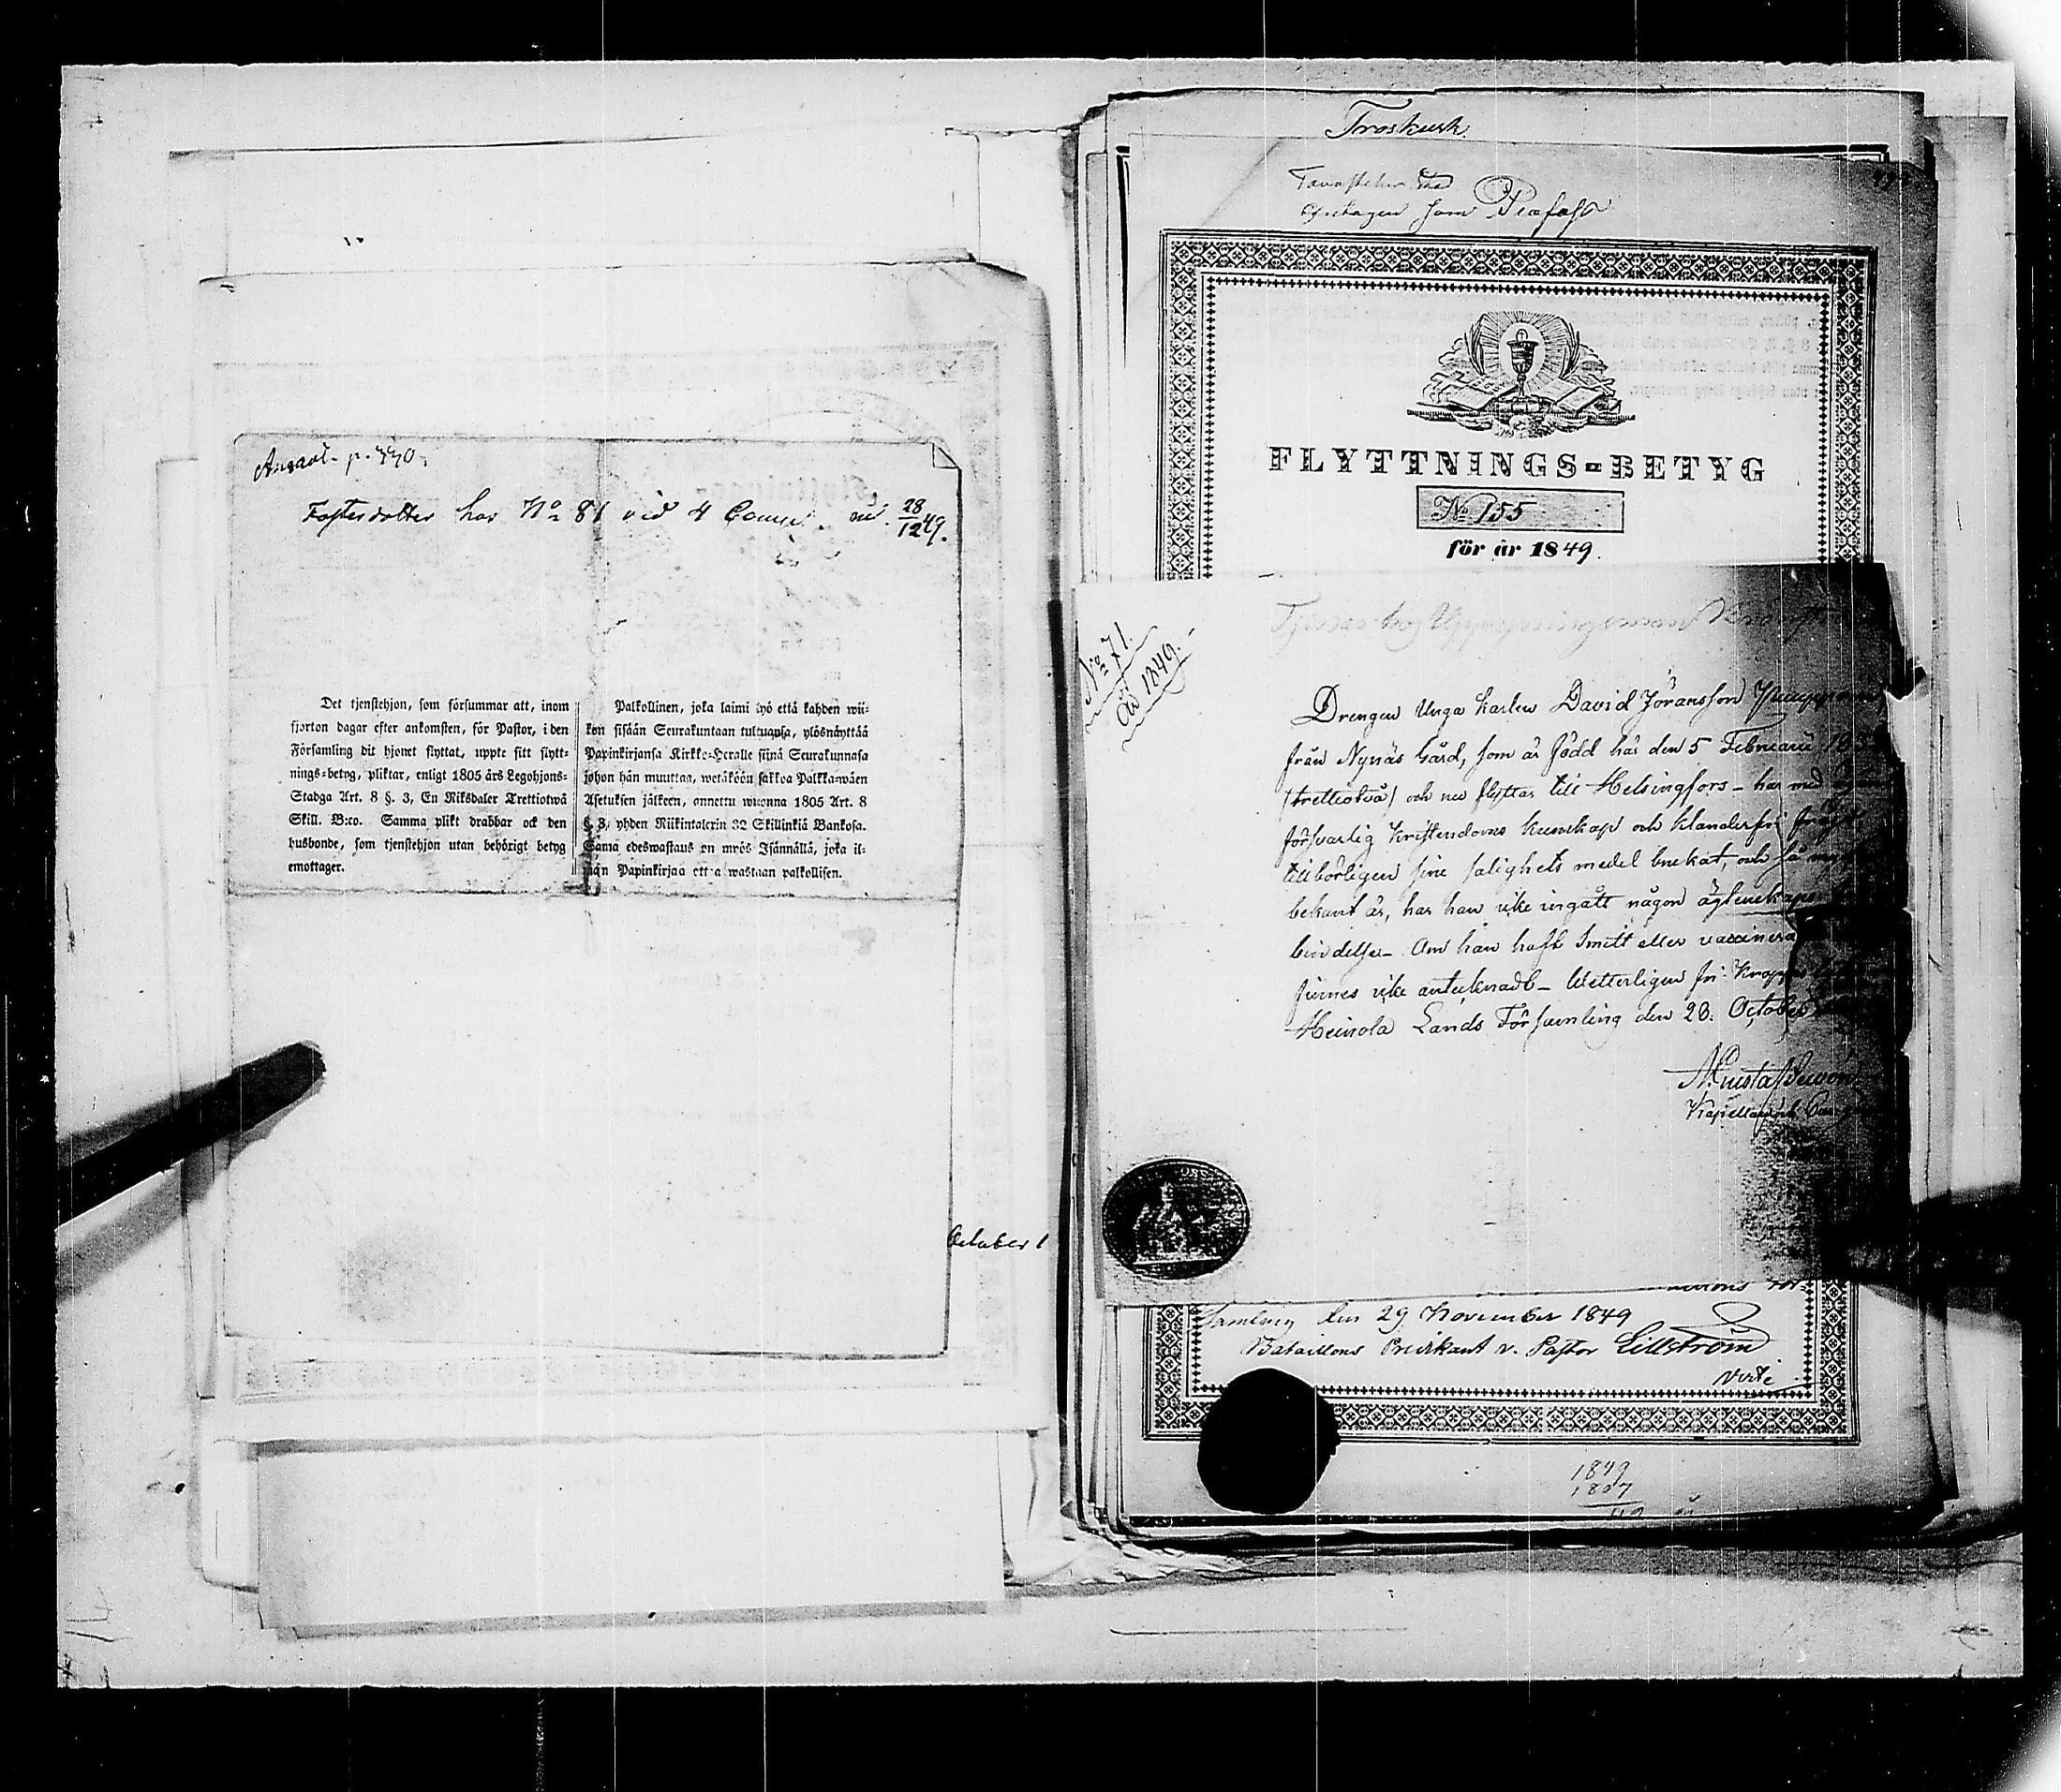 Fosterdotter hos No 81 vid 4 Comp. 28/12 49.
Det tjenstehjon, som försummar att, inom
fjorton dagar efter ankomsten, för Pastor, i den
Församling dit hjonet flyttat, uppte sitt flytt-
nings-betyg, pliktar, enligt 1805 års Legohjons-
Stadga Art. 8 §. 3, En Riksdaler Trettiotwå
Skill. B:co. Samma plikt drabbar ock den
husbonde, som tjenstehjon utan behörigt betyg
emottager.
Palkollinen, joka laimi lyö että kahden wii-
kon sisään Seurakuntaan tultuansa, ylösnäyttää
Papinkirjansa Kirkko-Herralle siinä Seurakunnasa
johon hän muuttaa, wetäköön sakkoa Palkka-wäen
Asetuksen jälkeen, annettu wuonna 1805 Art. 8
§. 3, yhden Riikintalerin 32 Skillinkiä Bankosa.
Sama edeswastaus on myös Isännällä, joka il-
man Papinkirjaa ottaa wastaan palkollisen.
October 1
Troskusk
antagen som Profoss
FLYTTNINGS-BETYG
No 155
för år 1849.
No 71.
år 1849.
Tjenar hos
Drengen Unga Karlen David Jöransson
från Nynäs Gård, som är född här den 5 Februarii 18
(trettiotvå) och nu flyttar till Helsingfors – har med
försvarlig Kristendoms kunskap och klanderfri
tillbörligen sine salighets medel brukat, och så
bekant är, har han icke ingått någon ägtenskaps
bindelse – Om han haft Smitt eller vaccinera
finnes icke antecknadt – Wetterligen fri.
Heinola Lands Församling den 28. October
samling den 29 November 1849
Bataillons Predikant v. Pastor Lillström
verte
1849
1807